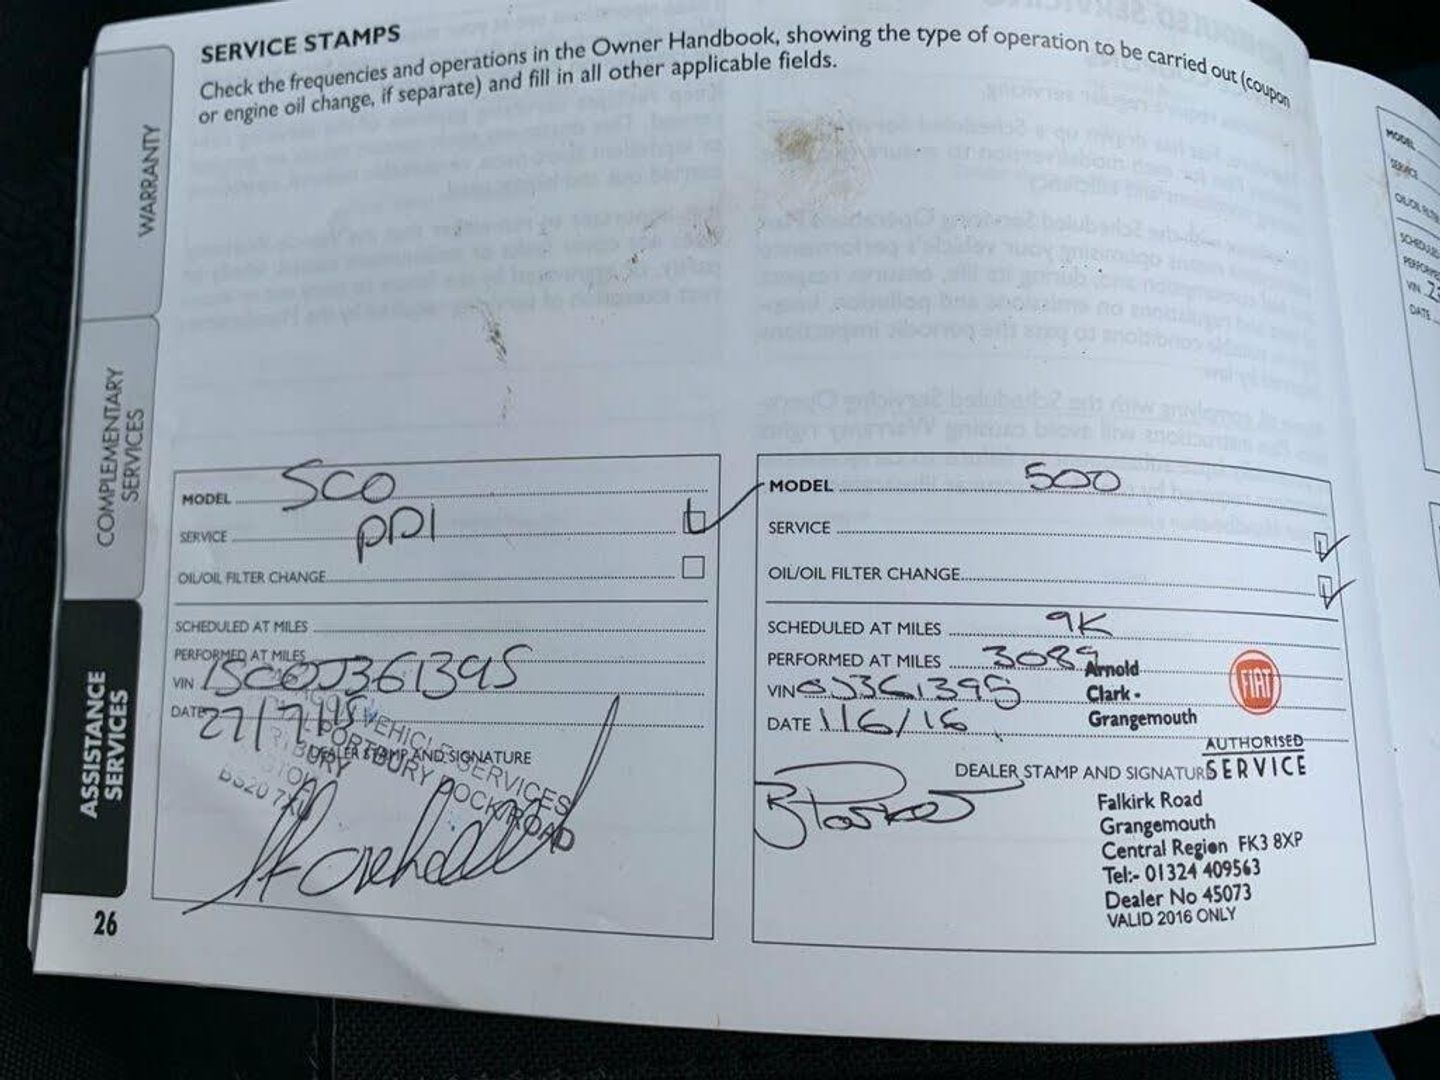 SERVICE STAMPS
Check the frequencies and operations in the Owner Handbook, showing the type of operation to be carried out (coupon
or engine oil change, if separate) and fill in all other applicable fields.
WARRANTY
COMPLEMENTARY
SERVICES
ASSISTANCE
SERVICES
26
MODEL 500
SERVICE PDI
OIL/OIL FILTER CHANGE
SCHEDULED AT MILES
PERFORMED AT MILES
VIN J361395
DATE 27/7/15
DEALER STAMP AND SIGNATURE
VEHICLE SERVICES
PORTBURY DOCK ROAD
BS20 7XJ
MODEL 500
SERVICE
OIL/OIL FILTER CHANGE
SCHEDULED AT MILES 9K
PERFORMED AT MILES 3089
VIN 0J361395
DATE 1/6/16
Arnold
Clark -
Grangemouth
FIAT
AUTHORISED
SERVICE
DEALER STAMP AND SIGNATURE
Falkirk Road
Grangemouth
Central Region FK3 8XP
Tel:- 01324 409563
Dealer No 45073
VALID 2016 ONLY
MODEL
SERVICE
OIL/OIL FILTE
SCHEDULED
PERFORMED
VIN
DATE